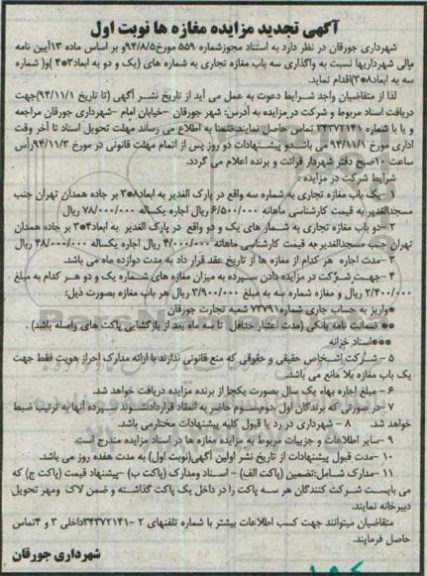 آگهی تجدید مزایده مغازه ها نوبت اول
شهرداری جورقان در نظر دارد به استناد مجوزشماره ۵۵۹ مورخ۹۴/۸/۵و بر اساس ماده ۱۳آیین نامه
مالی شهرداریها نسبت به واگذاری سه باب مغازه تجاری به شماره های (یک و دو به ابعاد۳*۴ )و( شماره
سه به ابعاد۸*۳)اقدام نماید.
لذا از متقاضیان واجد شرایط دعوت به عمل می آید از تاریخ نشر آگهی (تا تاریخ ۹۴/۱۱/۱)جهت
دریافت اسناد مربوط و شرکت در مزایده به آدرس: شهر جورقان -خیابان امام -شهرداری جورقان مراجعه
و یا با شماره ۳۴۳۷۲۱۴۱ تماس حاصل نمایند.ضمنا به اطلاع می رساند مهلت تحویل اسناد تا آخر وقت
اداری مورخ ۹۴/۱۱/۱ می باشد.و پیشنهادات دو روز پس از اتمام مهلت قانونی در مورخ ۹۴/۱۱/۳رأس
ساعت ۱۰صبح دفتر شهردار قرائت و برنده اعلام می گردد.
شرایط شرکت در مزایده :
۱- یک باب مغازه تجاری به شماره سه واقع در پارک الغدیر به ابعاد۸*۳ بر جاده همدان تهران جنب
مسجدالغدیر به قیمت کارشناسی ماهانه ۶/۵۰۰/۰۰۰ ریال اجاره یکساله ۷۸/۰۰۰/۰۰۰ ریال
۲-دو باب مغازه تجاری به شماز های یک و دو واقع در پارک الغدیر به ابعاد۴*۳ بر جاده همدان
تهران جنب مسجدالغدیر به قیمت کارشناسی ماهانه ۴/۰۰۰/۰۰۰ ریال اجاره یکساله ۴۸/۰۰۰/۰۰۰ ریال
۳-مدت اجاره هر کدام از مغازه ها از تاریخ عقد قرار داد به مدت دوازده ماه می باشد.
۴- جهت شرکت در مزایده دادن سپرده به میزان مغازه های شماره یک و دو هر کدام به مبلغ
۲/۴۰۰/۰۰۰ ریال و مغازه شماره سه به مبلغ ۳/۹۰۰/۰۰۰ ریال هر باب مغازه بصورت ذیل:
*واریز به حساب جاری شماره۷۳۷۹۱ شعبه تجارت جورقان
** ضمانت نامه بانکی (مدت اعتبار حداقل تا سه ماه بعد از بازگشایی پاکت های واصله باشد) .
***اسناد خزانه
۵ - شرکت اشخاص حقیقی و حقوقی که منع قانونی ندارند با ارائه مدارک احراز هویت فقط جهت
یک باب مغازه بلا مانع می باشد.
۶ - مبلغ اجاره بهاء یک سال بصورت یکجا از برنده مزایده دریافت خواهد شد.
۷- در صورتی که برندگان اول ،دوم،سوم حاضر به انعقاد قراردادنشوند سپرده آنها به ترتیب ضبط
خواهد شد. ۸ - شهرداری در رد یا قبول کلیه پیشنهادات مختارمی باشد.
۹-سایر اطلاعات و جزییات مربوط به مزایده مغازه ها در اسناد مزایده مندرج است.
۱۰ -مدت قبول پیشنهادات از تاریخ نشر اولین آگهی(نوبت اول) به مدت هفده روز می باشد.
۱۱- مدارک شامل:تضمین (پاکت الف) - اسناد ومدارک (پاکت ب) -پیشنهاد قیمت (پاکت ج) که
می بایست شرکت کنندگان هر سه پاکت را در داخل یک پاکت گذاشته و ضمن لاک ومهر تحویل
دبیرخانه نمایند.
متقاضیان میتوانند جهت کسب اطلاعات بیشتر با شماره تلفنهای ۲-۳۴۳۷۲۱۴۱داخلی ۳ و ۴تماس
حاصل فرمایند.
شهرداری جورقان